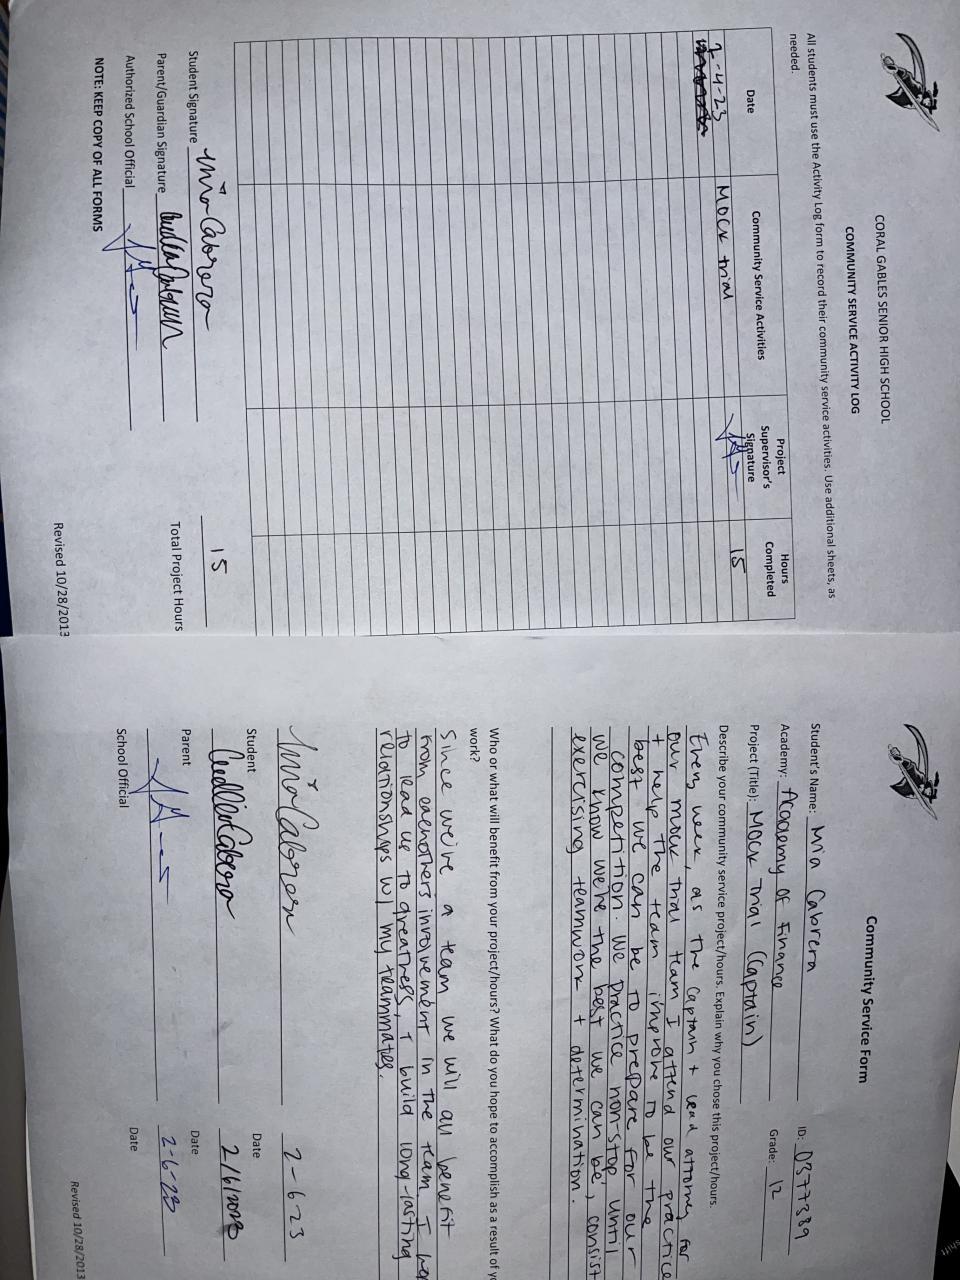 CORAL GABLES SENIOR HIGH SCHOOL
COMMUNITY SERVICE ACTIVITY LOG
All students must use the Activity Log form to record their community service activities. Use additional sheets, as
needed.
Date
Community Service Activities
Project
Supervisor's
Signature
Hours
Completed
2-4-23
Mock trial
15
Student Signature Mia Cabrera
15
Parent/Guardian Signature
Total Project Hours
Authorized School Official
NOTE: KEEP COPY OF ALL FORMS
Revised 10/28/2013
Community Service Form
Student's Name: Mia Cabrera
ID: 0377339
Academy: Academy of Finance
Grade: 12
Project (Title): Mock Trial (Captain)
Describe your community service project/hours. Explain why you chose this project/hours.
Every week, as the captain + lead attorney for
our mock trial team I attend our practice
+ help the team improve to be the
best we can be to prepare for our
competition. We practice non-stop until
we know we're the best we can be, consist
exercising teamwork + determination.
Who or what will benefit from your project/hours? What do you hope to accomplish as a result of
work?
Since we're a team we will all benefit
from eachothers involvement in the team I
to lead us to greatness, + build long-lasting
relationships w/ my teammates.
Mia Cabrera
2-6-23
Student
Date
2/6/2023
Parent
Date
2-6-23
School Official
Date
Revised 10/28/2013
shift